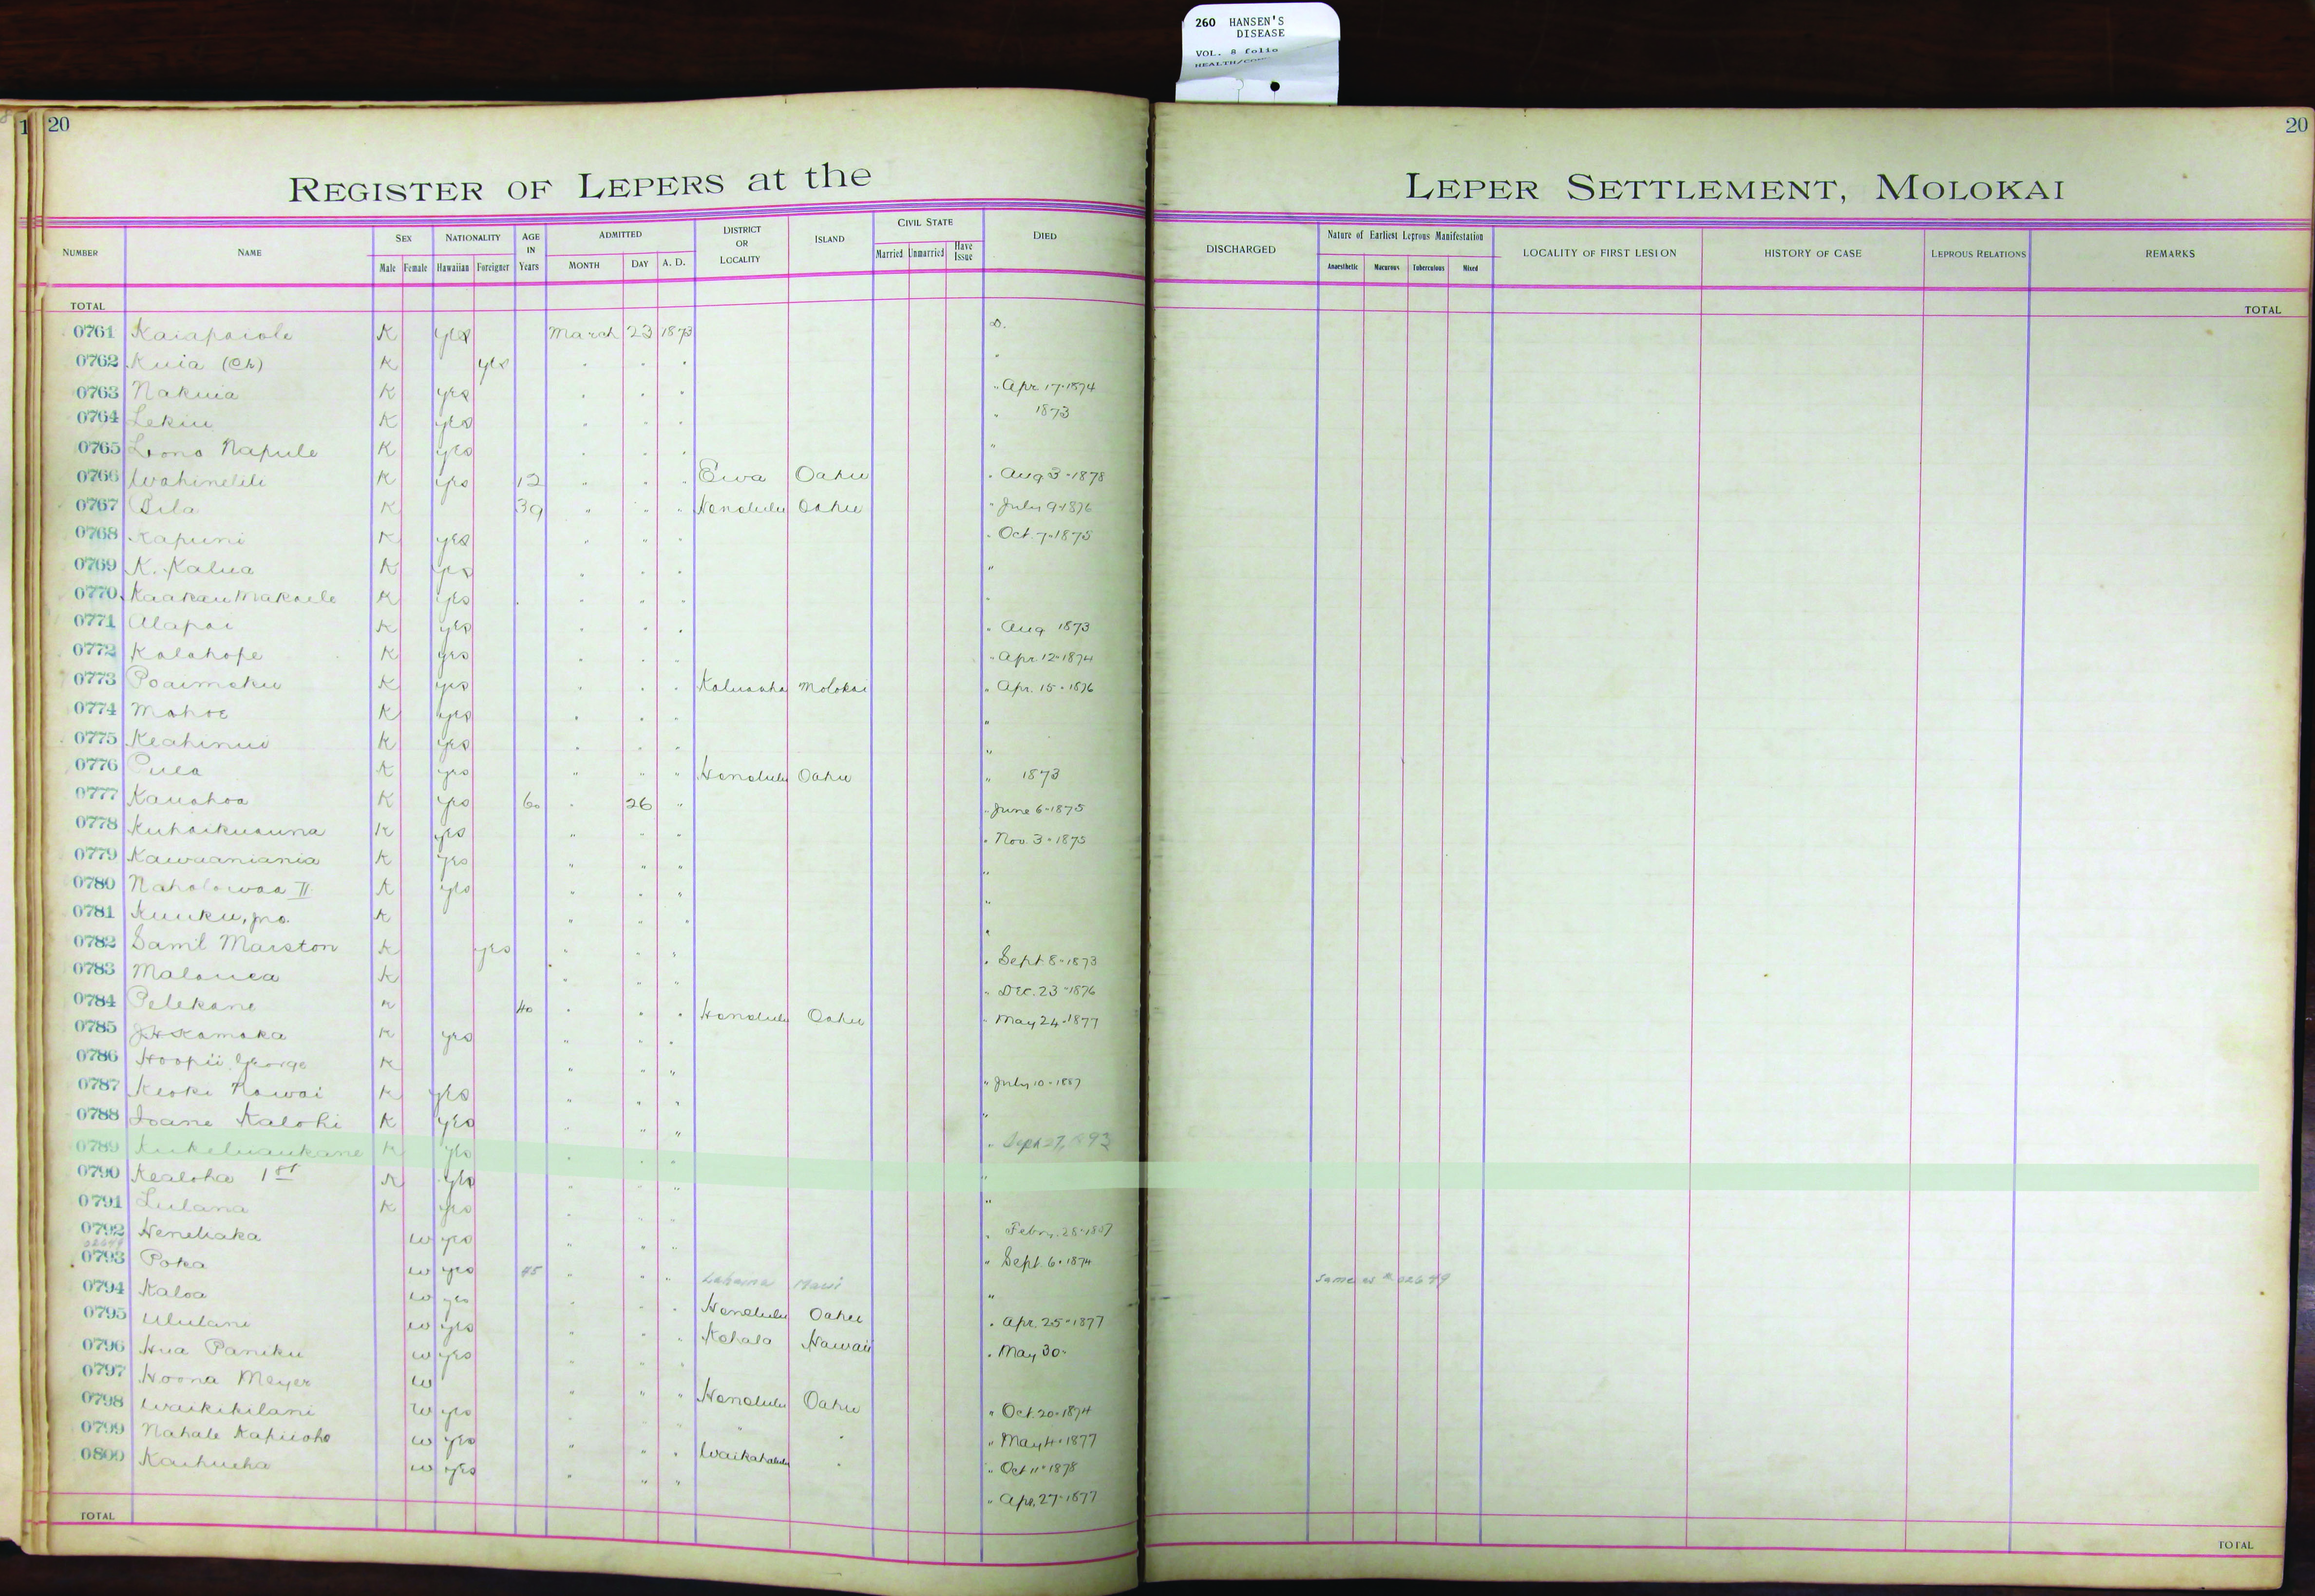 260 HANSEN'S
DISEASE
VOL. 8 folio
20
20
REGISTER OF LEPERS at the LEPER SETTLEMENT, MOLOKAI
NUMBER NAME SEX Male Female NATIONALITY Hawaiian Foreigner AGE IN Years ADMITTED MONTH DAY A. D. DISTRICT OR LOCALITY ISLAND CIVIL STATE Married Unmarried Have Issue DIED DISCHARGED Nature of Earliest Leprous Manifestation Anaesthetic Macurous Tuberculous Mixed LOCALITY OF FIRST LESION HISTORY OF CASE LEPROUS RELATIONS REMARKS
TOTAL TOTAL
0761 Kaiapaiole K yes March 23 1873 D.
0762 Kuia (Ch) K yes " " " "
0763 Nakuia K yes " " " " Apr 17-1874
0764 Lekiu K yes " " " " 1873
0765 Lono Napule K yes " " " "
0766 Wahinelili K yes 12 " " " Ewa Oahu " Aug 3-1878
0767 Pila K 39 " " " Honolulu Oahu " July 9-1876
0768 Kapuni K yes " " " " Oct. 7-1875
0769 K. Kalua K yes " " " "
0770 Kaakau Makaele K yes " " " "
0771 Alapai K yes " " " " Aug 1873
0772 Kalahope K yes " " " " Apr. 12-1874
0773 Poaimoku K yes " " " Kaluaaha Molokai " Apr. 15-1876
0774 Mahoe K yes " " " "
0775 Keahinui K yes " " " "
0776 Puea K yes " " " Honolulu Oahu " 1873
0777 Kauahoa K yes 60 " 26 " " June 6-1875
0778 Kuhaikuauna K yes " " " " Nov. 3-1875
0779 Kawaaniania K yes " " " "
0780 Naholowaa II K yes " " " "
0781 Kuuku, jno. K " " " "
0782 Saml Marston K yes " " " " Sept 8-1873
0783 Malouea K " " " " Dec. 23-1876
0784 Pelekane K 40 " " " Honolulu Oahu " May 24-1877
0785 J H Kamaka K yes " " "
0786 Hoopii George K " " " " July 10-1887
0787 Keoki Nawai K yes " " " "
0788 Ioane Kalohi K yes " " " " Sept 27, 1893
0789 Kukeluaukane K yes " " " "
0790 Kealoha 1st K yes " " " "
0791 Lulana K yes " " " " Febr. 28-1887
0792 Heneliaka W yes " " " " Sept. 6-1874
02649
0793 Poka W yes 45 " " " Lahaina Maui " same as # 02649
0794 Kaloa W yes " " " Honolulu Oahu " Apr. 25-1877
0795 Ululani W yes " " " Kohala Hawaii " May 30-
0796 Hua Paniku W yes " " "
0797 Hoona Meyer W " " " Honolulu Oahu " Oct. 20-1874
0798 Waikikilani W yes " " " " " " May 4-1877
0799 Nahale Kapuoho W yes " " " Waikahalulu " " Oct 11-1878
0800 Kaihueha W yes " " " " Apr. 27-1877
TOTAL TOTAL